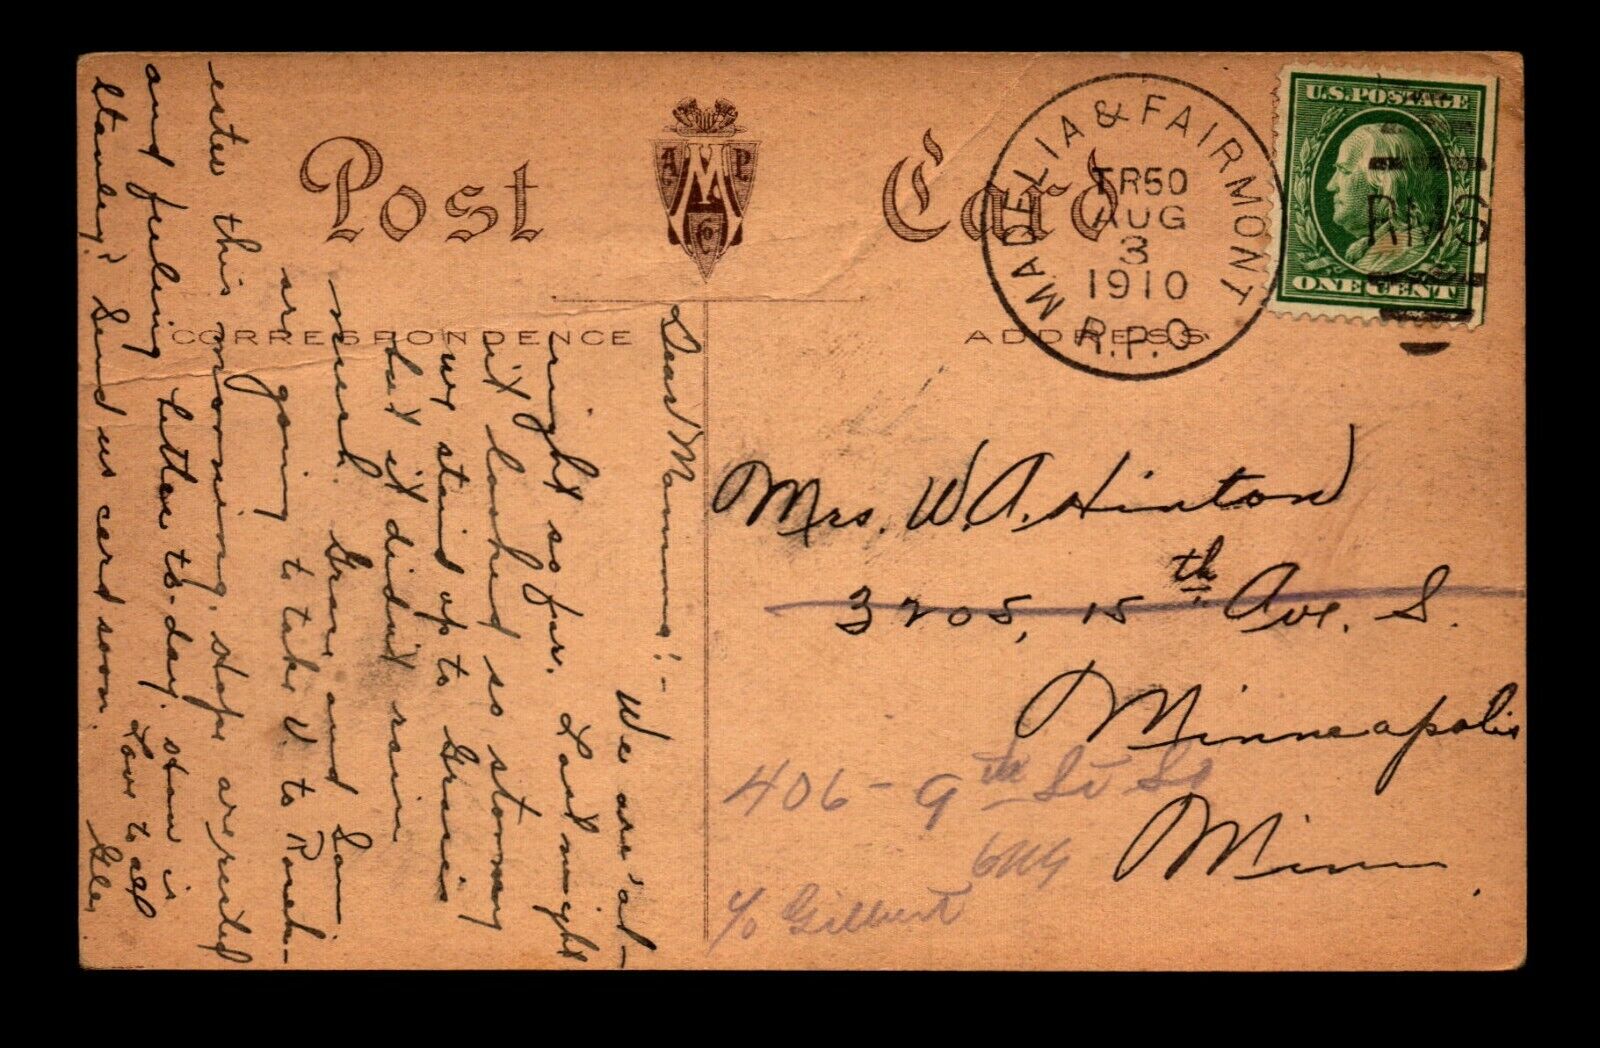 Post Card
A M P Co
CORRESPONDENCE
ADDRESS
MADELIA & FAIRMONT
TR50
AUG
3
1910
R.P.O.
U.S. POSTAGE
ONE CENT
RMS
Mrs. W. A. Hinton
3205, 15th Ave. S.
Minneapolis
Minn.
406 - 9th St So
c/o Gilbert
Dear Mamma:-
We are all
right so far. Last night
it looked so stormy
we staid up to Grace's
but it didn't rain
much. Grace and
are going to take V. to Roch-
ester this morning. Hope are rested
and feeling better to-day. How is
Stanley? Send us card soon.
Love to all